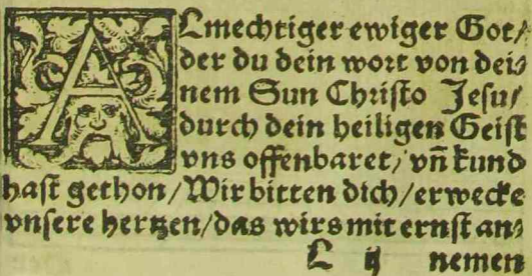 Almechtiger ewiger Got/
der du dein wort von dei⸗
nem Sun Christo Jesu/
durch dein heiligen Geist
vns offenbaret/ vñ kund
hast gethon/Wir bitten dich/erwecke
vnsere hertzen/das wirs mit ernst an⸗
L ij nemen